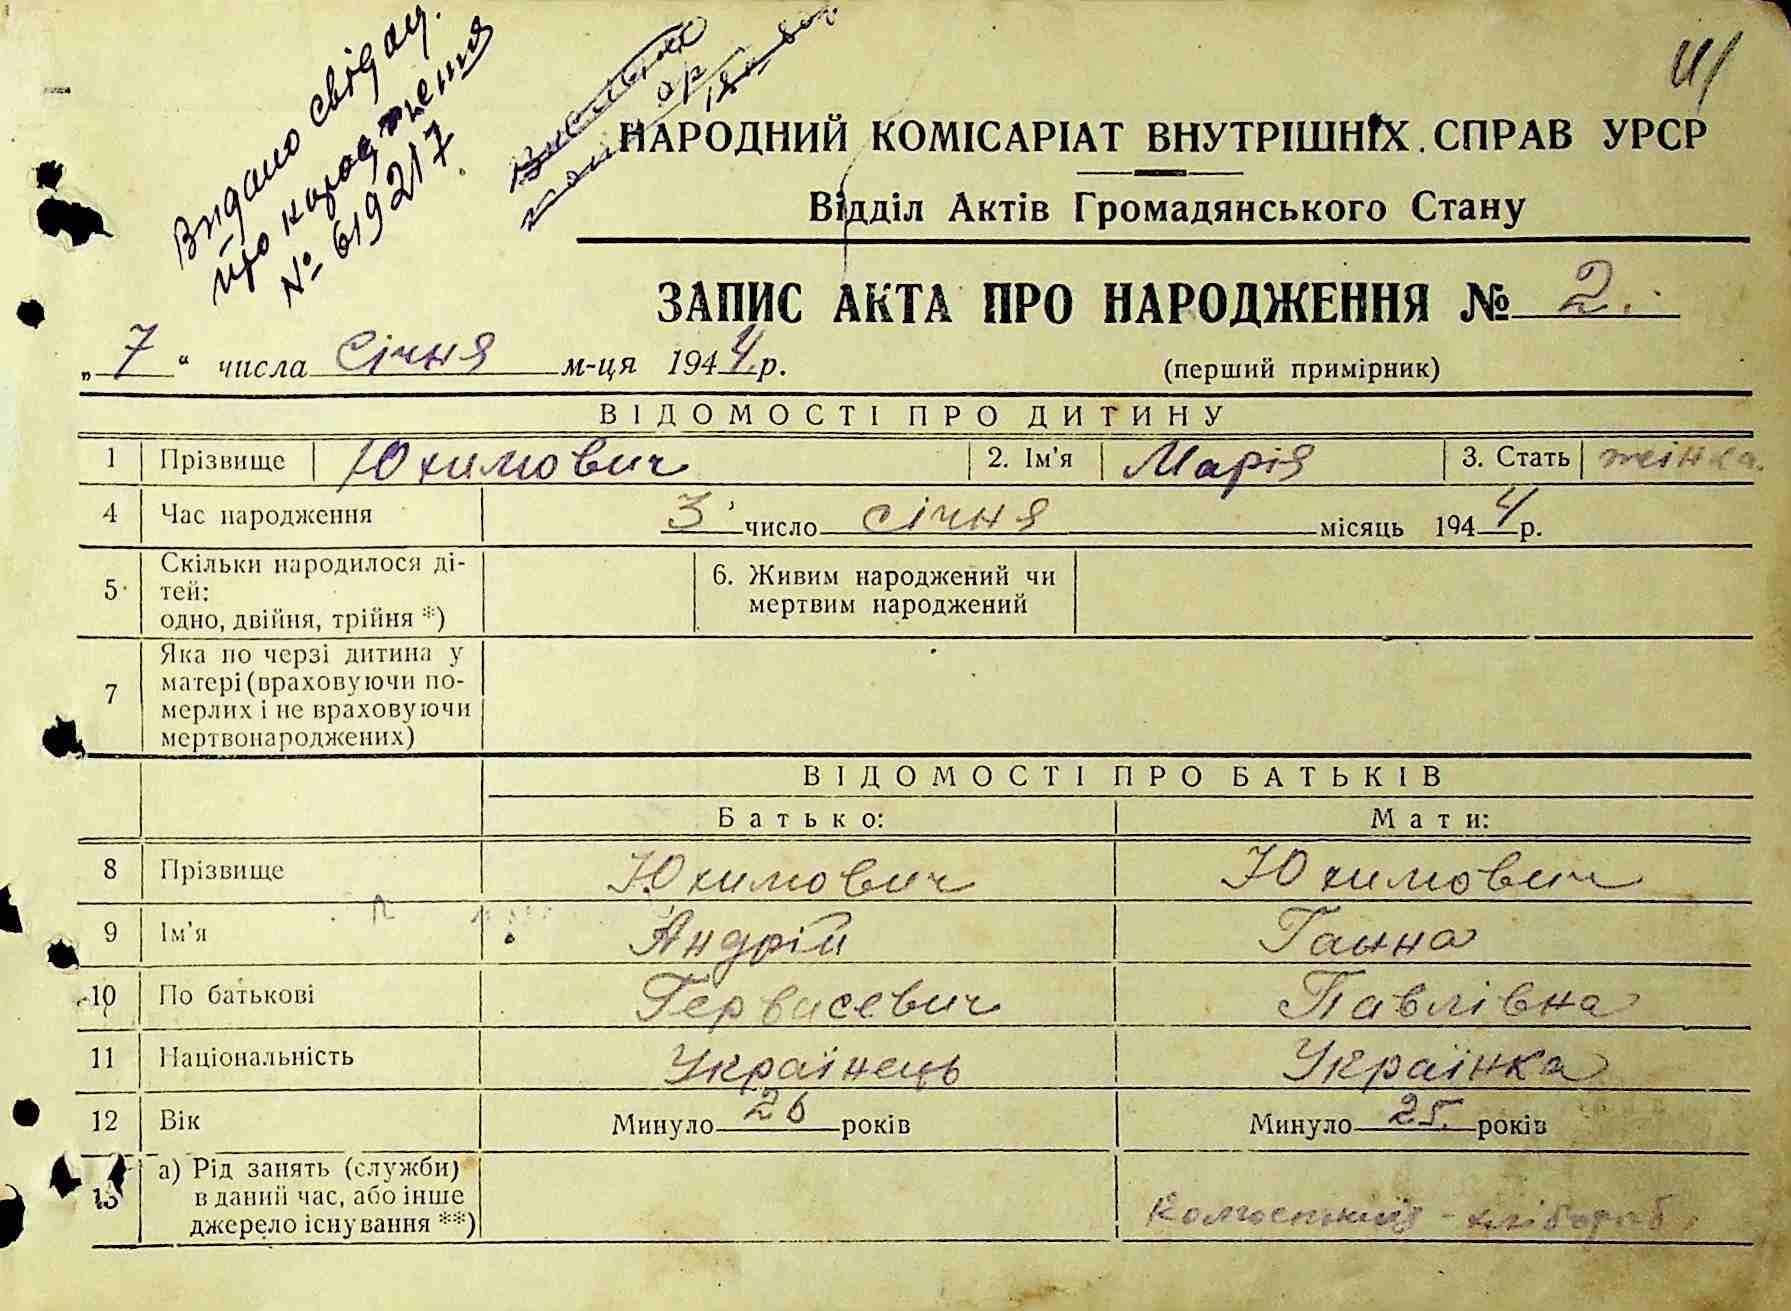 Видано свідоц.
про народження
№ 619217
41
НАРОДНИЙ КОМІСАРІАТ ВНУТРІШНІХ СПРАВ УРСР
Відділ Актів Громадянського Стану
ЗАПИС АКТА ПРО НАРОДЖЕННЯ № 2.
„7“ числа Січня м-ця 1944 р. (перший примірник)
ВІДОМОСТІ ПРО ДИТИНУ
1 Прізвище Юхимович 2. Ім'я Марія 3. Стать жінка.
4 Час народження 3 число січня місяць 1944 р.
5 Скільки народилося ді-
тей:
одно, двійня, трійня *)
6. Живим народжений чи
мертвим народжений
7 Яка по черзі дитина у
матері (враховуючи по-
мерлих і не враховуючи
мертвонароджених)
ВІДОМОСТІ ПРО БАТЬКІВ
Батько: Мати:
8 Прізвище Юхимович Юхимович
9 Ім'я Андрій Ганна
10 По батькові Гервасевич Павлівна
11 Національність Українець Українка
12 Вік Минуло 26 років Минуло 25. років
13 а) Рід занять (служби)
в даний час, або інше
джерело існування **)
хлібороб